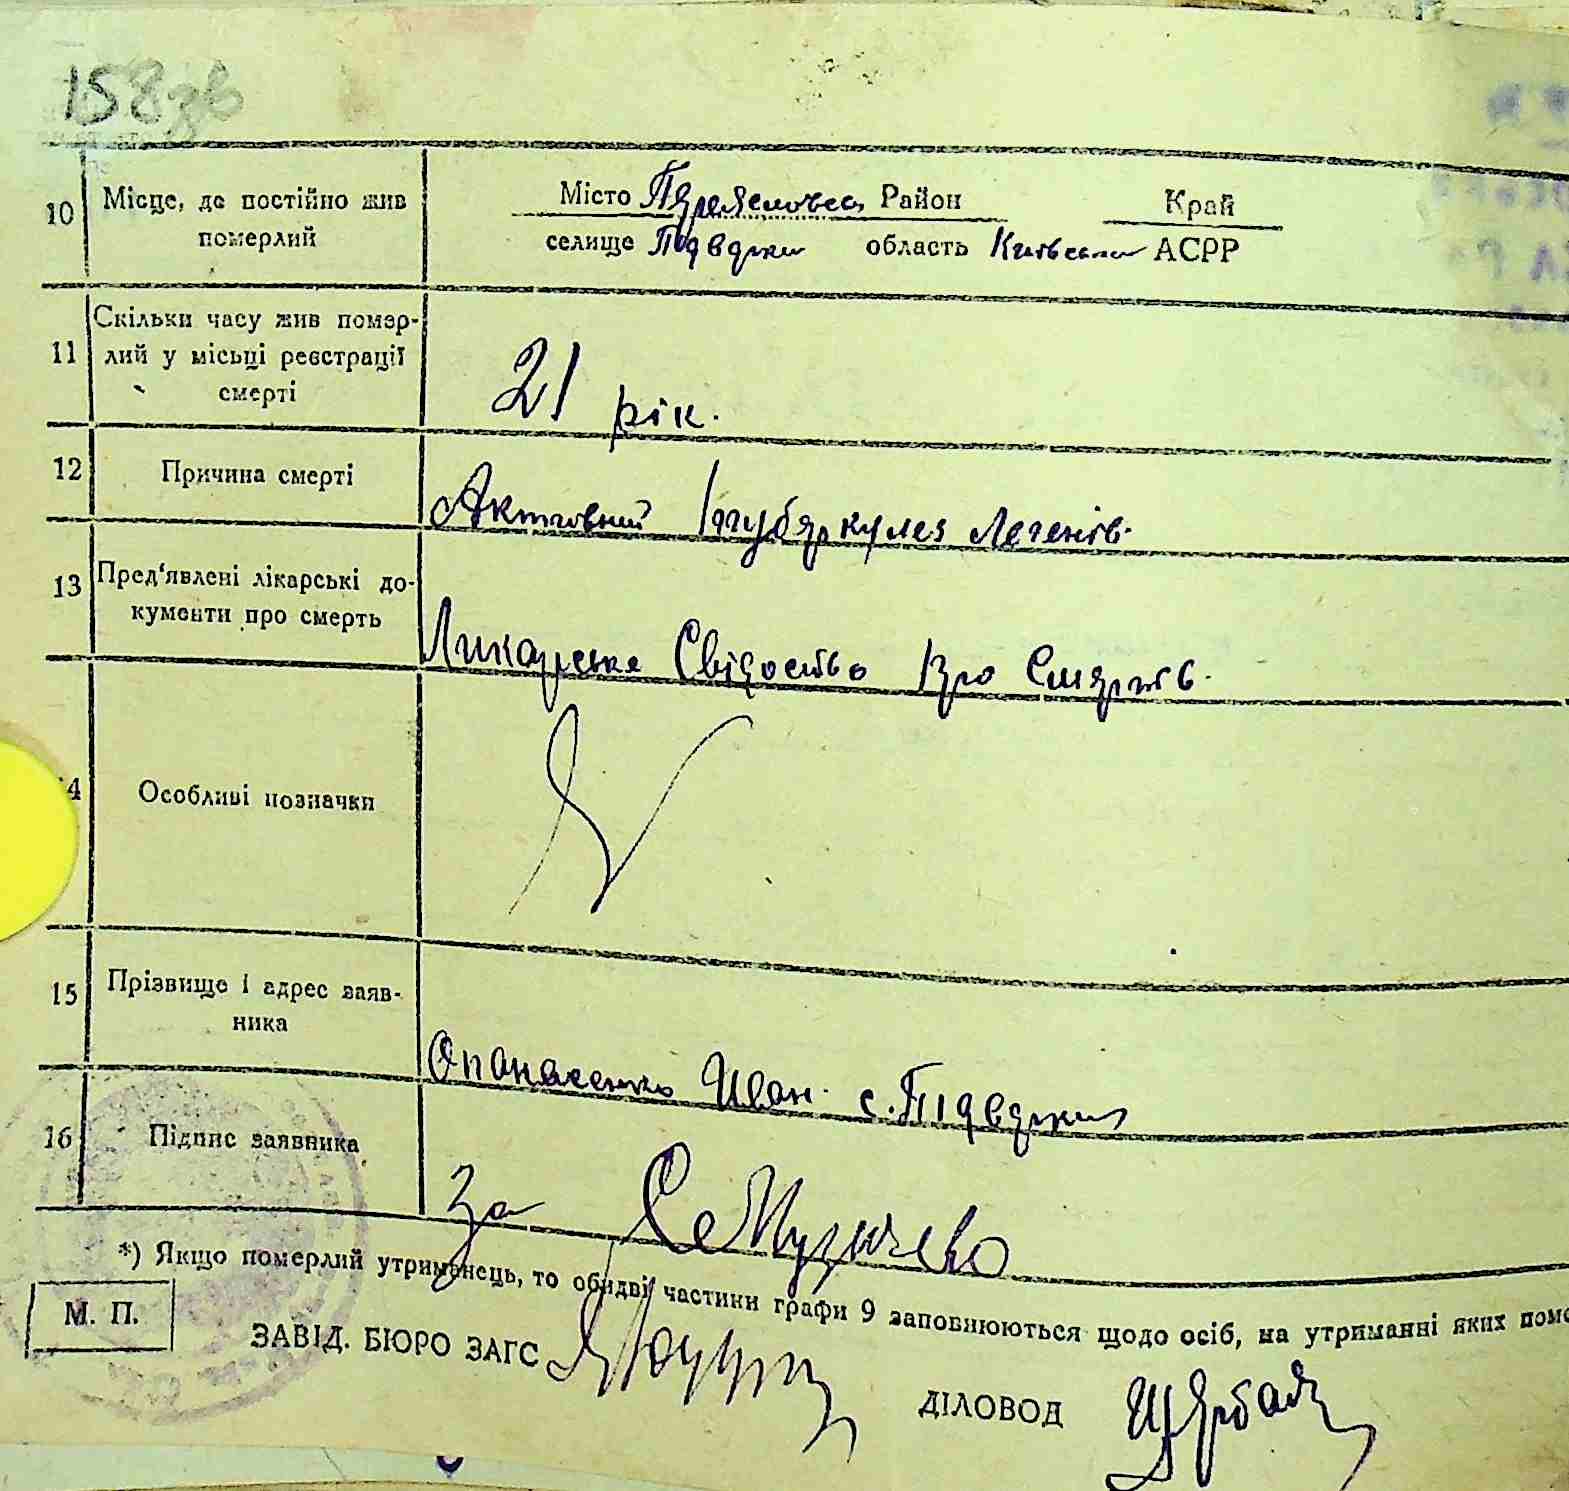 158зв
10 Місце, де постійно жив Місто Район Край
померлий селище Підварки область Київська АСРР
Скільки часу жив помер-
11 лий у місьці реєстрації 21 рік.
смерті
12 Причина смерті Активний туберкулез Легенів.
13 Пред'явлені лікарські до-
кументи про смерть Ликарське Свідоство про Смерть.
Особливі позначки
15 Прізвище і адрес заяв-
ника Опанасенко Иван. с. Підварки
16 Підпис заявника За
*) Якщо померлий утриманець, то обидві частини графи 9 заповнюються щодо осіб, на утриманні яких
М. П.
ЗАВІД. БЮРО ЗАГС
ДІЛОВОД